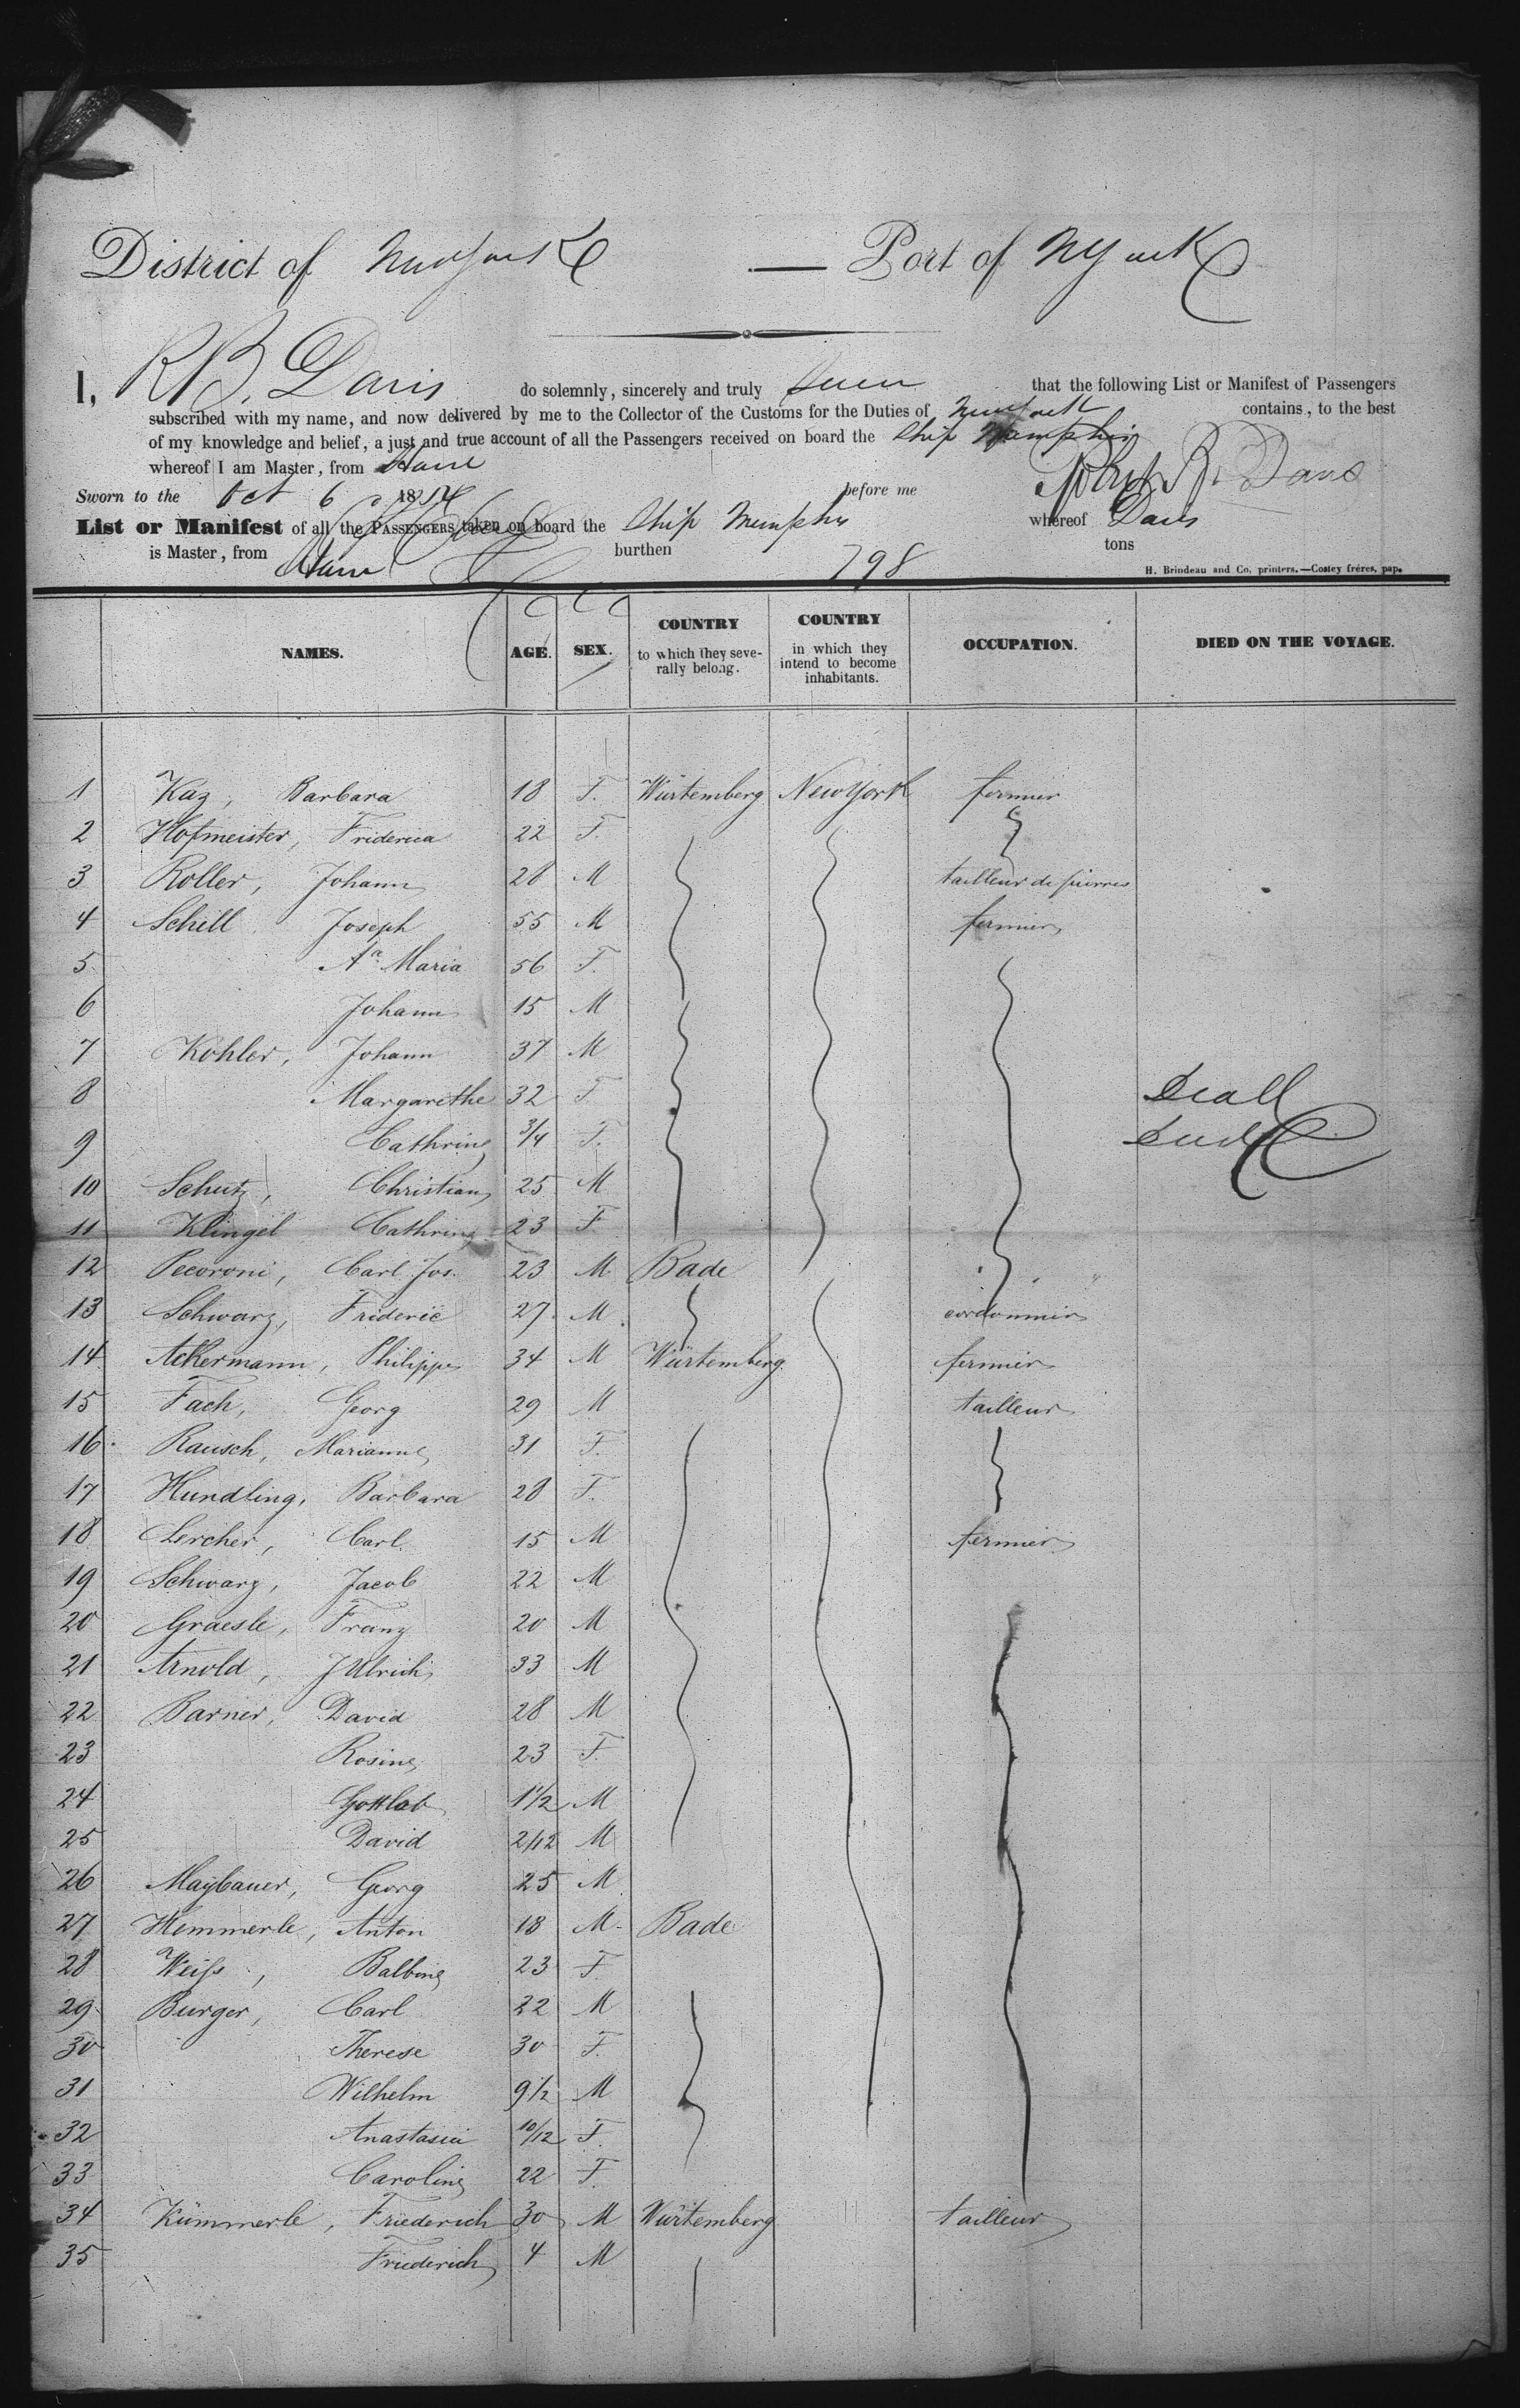 District of New York — Port of N York
I, R B. Davis do solemnly, sincerely and truly Swear that the following List or Manifest of Passengers
subscribed with my name, and now delivered by me to the Collector of the Customs for the Duties of New York contains, to the best
of my knowledge and belief, a just and true account of all the Passengers received on board the Ship Memphis
whereof I am Master, from Havre Robert B. Davis
Sworn to the Oct 6 18 before me
List or Manifest of all the PASSENGERS taken on board the Ship Memphis whereof Davis
is Master, from Havre burthen 798 tons
H. Brindeau and Co, printers.—Costey fréres, pap.
NAMES. AGE. SEX. COUNTRY to which they seve- rally belong. COUNTRY in which they intend to become inhabitants. OCCUPATION. DIED ON THE VOYAGE.
1 Kaz, Barbara 18 F. Würtemberg New York fermier
2 Hofmeister, Friderica 22 F.
3 Roller, Johann 28 M tailleur de pierres
4 Schill Joseph 55 M fermier
5 Aª Maria 56 F.
6 Johann 15 M
7 Kohler, Johann 37 M
8 Margarethe 32 F.
9 Cathrine 3/4 F.
10 Schutz, Christian 25 M
11 Klingel Cathrine 23 F
12 Pecoroni, Carl Jos. 23 M Bade
13 Schwarz, Frideric 27 M cordonnier
14 Ackermann, Philippe 34 M Würtemberg fermier
15 Fach, Georg 29 M tailleur
16 Rausch, Marianne 31 F.
17 Hundling, Barbara 28 F.
18 Lercher, Carl 15 M fermier
19 Schwarz, Jacob 22 M
20 Graesle, Franz 20 M
21 Arnold, J Ulrich 33 M
22 Barner, David 28 M
23 Rosine 23 F.
24 Gottlob 1 1/2 M
25 David 2/12 M
26 Maybauer, Georg 25 M
27 Hemmerle, Anton 18 M Bade
28 Weiss, Balbine 23 F
29 Burger, Carl 22 M
30 Therese 30 F.
31 Wilhelm 9 1/2 M
32 Anastasia 10/12 F.
33 Caroline 22 F
34 Kümmerle, Friederich 30 M Würtemberg tailleur
35 Friederich 4 M